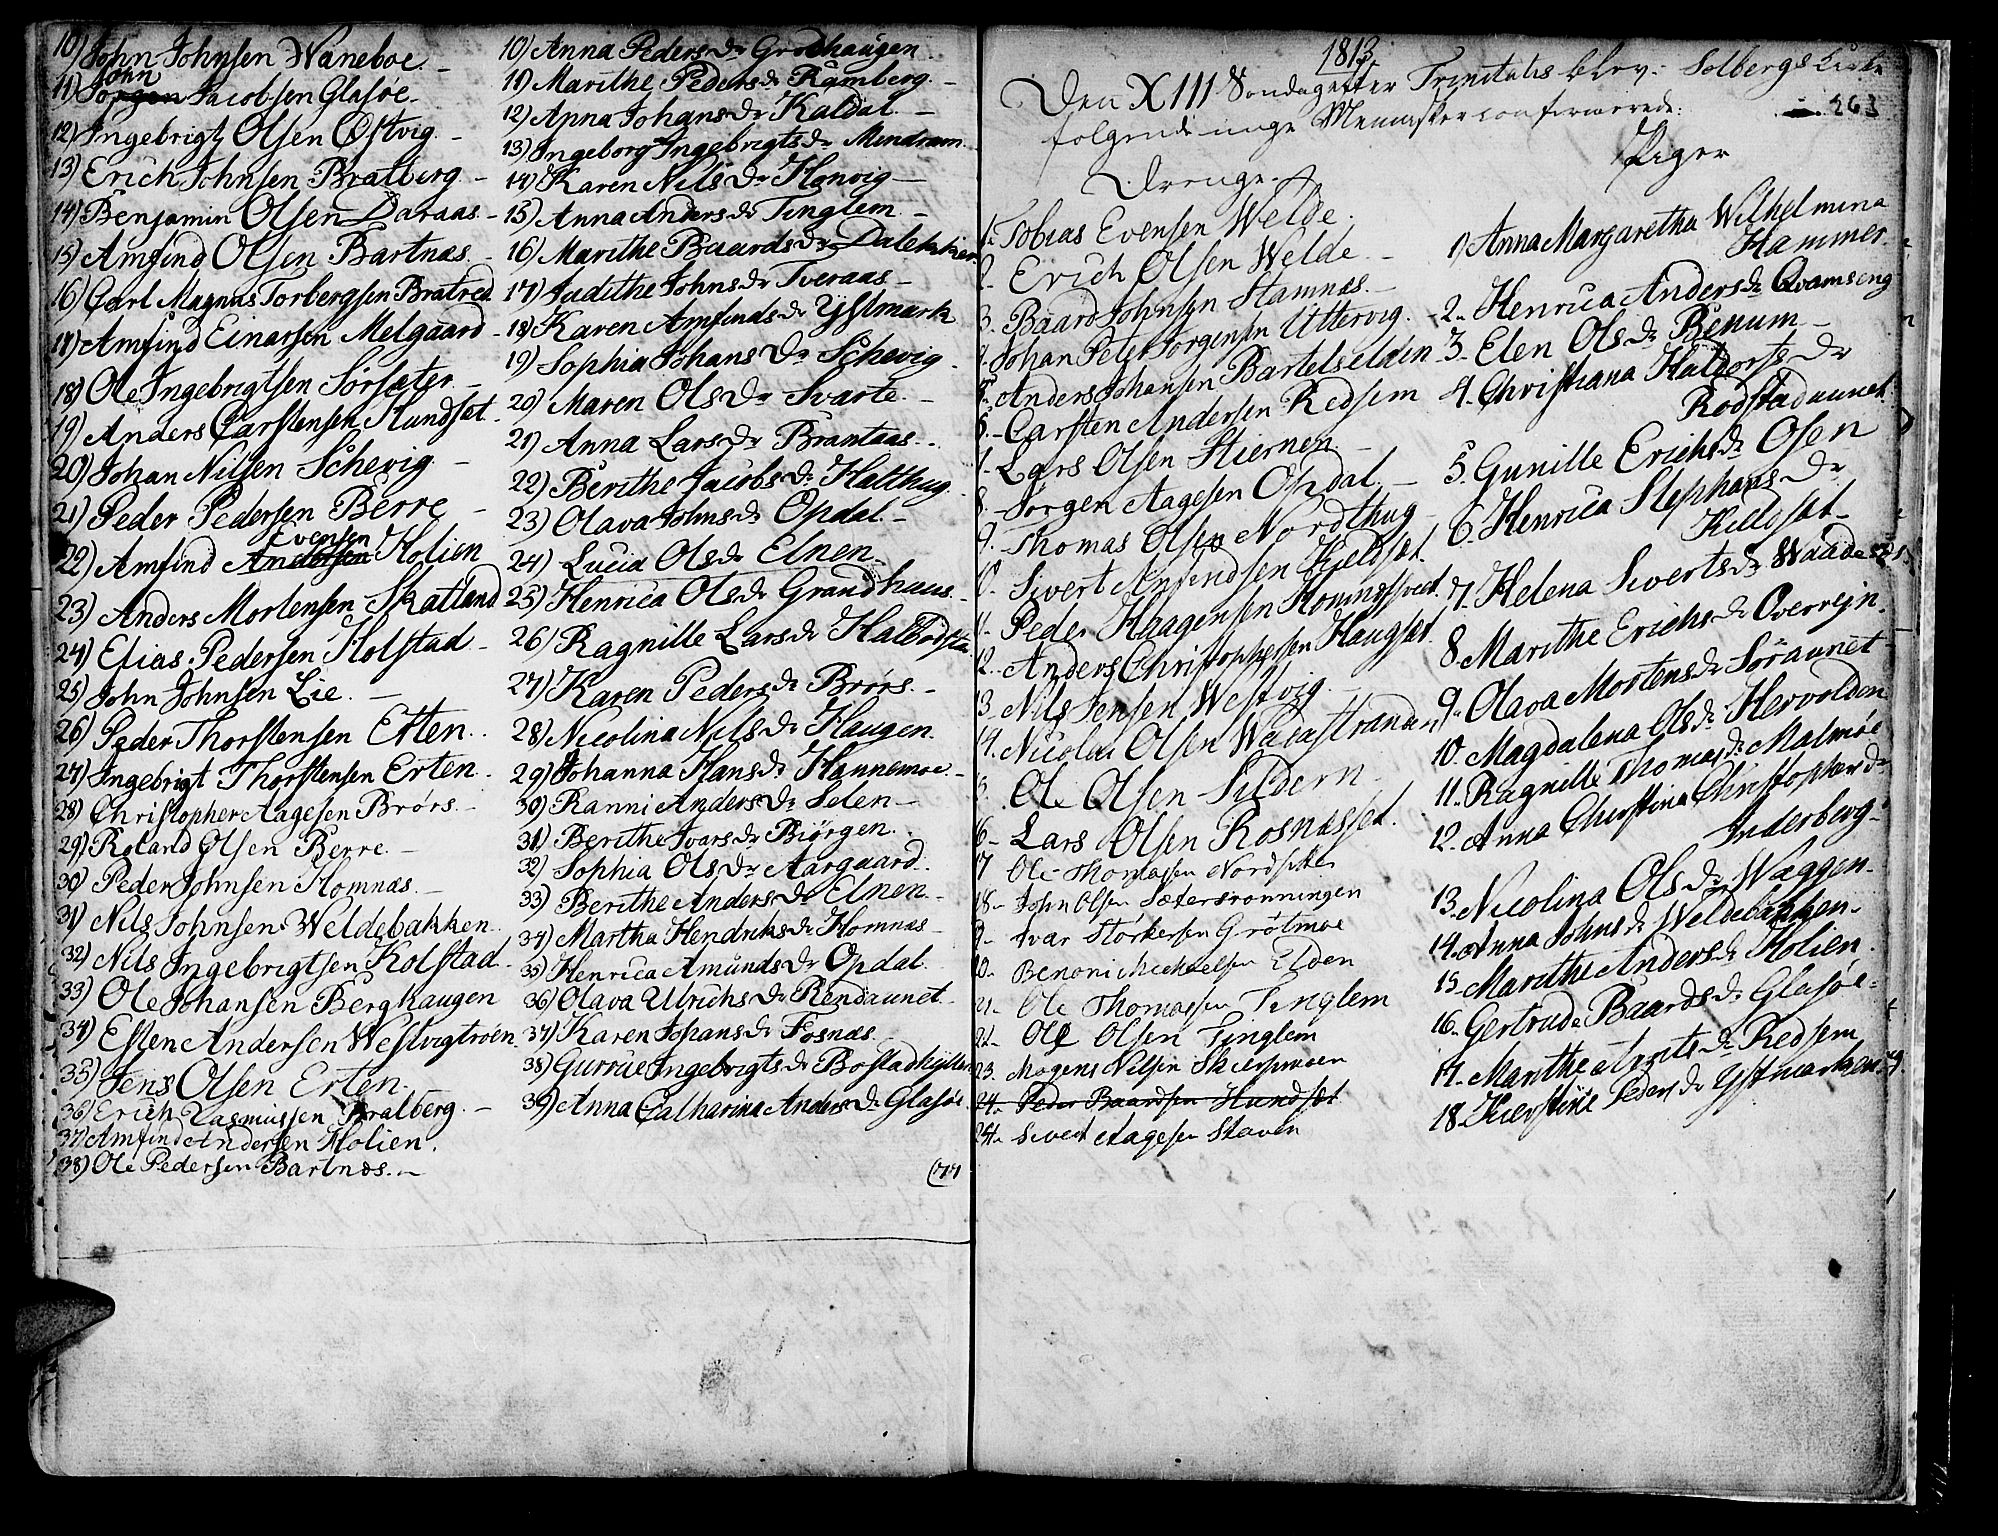 10) John Johnsen Waneboe. –
John
11) Jørgen Jacobsen Glasøe –
12) Ingebrigt Olsen Østvig –
13) Erich Johnsen Bratberg –
14) Benjamin Olsen Daraas –
15) Amfind Olsen Bartnæs. –
16) Carl Magnus Torbergsen Bratred
17) Amfind Einarsen Melgaard –
18) Ole Ingebrigtsen Sørsæter –
19) Anders Carstensen Hundset.
20) Johan Nilsen Schevig –
21) Peder Pedersen Berre –
Evensen
22) Amfind Andersen Holien
23) Anders Mortensen Skatland
24) Elias Pedersen Holstad –
25) John Johnsen Lie. –
26) Peder Thorstensen Erten.
27) Ingebrigt Thorstensen Erten.
28) Christopher Aagesen Brørs. –
29) Roland Olsen Berre. –
30) Peder Johnsen Homnæs. –
31) Nils Johnsen Weldebakken.
32) Nils Ingebrigtsen Kolstad –
33) Ole Johansen Berghaugen
34) Esten Andersen Westvigtrøen.
35) Jens Olsen Erten.
36) Erich Rasmussen Bratberg. –
37) Amfind Andersen Holien.
38) Ole Pedersen Bartnæs. –
10) Anna Pedersdr Grodhaugen.
11) Marithe Pedersdr Ramberg. –
12) Anna Johansdr Kaldal. –
13) Ingeborg Ingebrigtsdr Mendram.
14) Karen Nilsdr Honvig –
15) Anna Andersdr Tinglem. –
16) Marithe Baardsdr Dalekkier
17) Judithe Johnsdr Tveraas –
18) Karen Amfindsdr Ystmark
19) Sophia Johansdr Schevig –
20) Maren Olsdr Svarte. –
21) Anna Larsdr Brantaas. –
22) Berithe Jacobsdr Halthug.
23) Olava Johnsdr Opdal. –
24) Lucia Olsdr Elnen
25) Henrica Olsdr Grandhaus –
26) Ragnille Larsdr
27) Karen Pedersdr Brørs. –
28) Nicolina Nilsdr Haugen.
29) Johanna Hansdr Hannemoe –
30) Ranni Andersdr Selen –
31) Berithe Ivarsdr Biørgen.
32) Sophia Olsdr Aargaard.
33) Berithe Andersdr Elnen. –
34) Martha Hendriksdr Homnæs –
35) Henrica Amundsdr Opdal.
36) Olava Ulrichsdr Rendaunet –
37) Karen Johansdr Fosnæs.
38) Gurrue Ingebrigtsdr Bostadhylten
39) Anna Catharina Andersdr Glasøe.
(77
1813
Den XIII Søndag efter Trinitatis blev i Solbergs Kirke
følgende unge Mennisker confirmerede.
263
Drenge
1. Tobias Evensen Welde.
2. Erich Olsen Welde. –
3. Baard Johnsen Hamnæs. –
4. Johan Peter Jørgensen Uttervig. –
5. Anders Johansen Bartelselden
6. Carsten Andersen Redsem
7. Lars Olsen Hiernen –
8. Jørgen Aagesen Opdal. –
9. Thomas Olsen Nordthug –
10. Sivert Amfindsen Kieldset.
11. Peder Haagensen
12. Anders Christophersen Haugset.
13. Nils Jensen Westvig
14. Nicolai Olsen Wadastranden
15. Ole Olsen Sildern –
16. Lars Olsen Rosnæsset.
17 Ole Thomassen Nordsette
18. John Olsen Sætersrønningen
19. Ivar Størkersen Grøtmoe
20. Benoni Michaelsen Elden
21. Ole Thomassen Tinglem
22. Ole Olsen Tinglem
23. Mogens Nilsen Skierpmoen
24. Peder Baardsen Hundset
24. Sivert Aagesen Staven
Piger
1) Anna Margaretha Wilhelmina
Hammer.
2. Henrica Andersdr Qvamseng
3. Elen Olsdr Renum –
4. Christiana Haldorsdr
Rodstadaunet.
5. Gunille Erichsdr Osen
6. Henrica Stephansdr
Kieldset –
7. Helena Sivertsdr
8. Marithe Erichsdr Overrejn.
9. Olava Mortensdr Søraunet –
10. Magdalena Olsdr Hervolden
11. Ragnille Thomasdr Malmøe
12. Anna Christina Christopherdr
Inderberg –
13. Nicolina Olsdr Waggen.
14. Anna Johnsdr Weldebakken.
15. Marithe Andersdr Holien.
16. Gertrude Baardsdr Glasøe –
17. Marithe Arntsdr Redsem
18. Kierstine Pedersdr Ystmarken